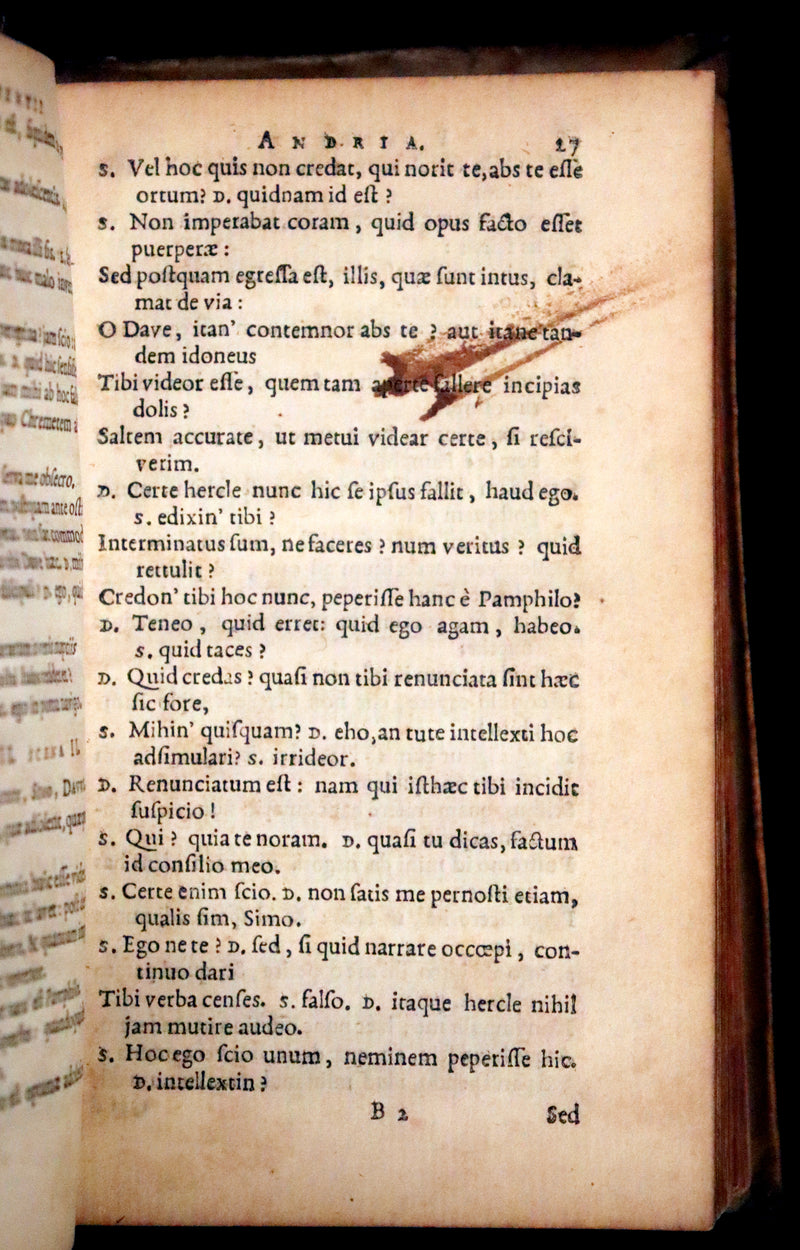 ANDRIA. 27
S. Vel hoc quis non credat, qui norit te, abs te eſſe
ortum? D. quidnam id eſt ?
S. Non imperabat coram, quid opus facto eſſet
puerperæ :
Sed poſtquam egreſſa eſt, illis, quæ ſunt intus, cla-
mat de via :
O Dave, itan' contemnor abs te ? aut itane tan-
dem idoneus
Tibi videor eſſe, quem tam aperte fallere incipias
dolis ?
Saltem accurate, ut metui videar certe, ſi reſci-
verim.
D. Certe hercle nunc hic ſe ipſus fallit, haud ego.
S. edixin' tibi ?
Interminatus ſum, ne faceres ? num veritus ? quid
rettulit ?
Credon' tibi hoc nunc, peperiſſe hanc è Pamphilo?
D. Teneo, quid erret: quid ego agam, habeo.
S. quid taces ?
D. Quid credas ? quaſi non tibi renunciata ſint hæc
ſic fore,
S. Mihin' quiſquam? D. eho, an tute intellexti hoc
adſimulari? S. irrideor.
D. Renunciatum eſt : nam qui iſthæc tibi incidit
ſuſpicio !
S. Qui ? quia te noram. D. quaſi tu dicas, factum
id conſilio meo.
S. Certe enim ſcio. D. non ſatis me pernoſti etiam,
qualis ſim, Simo.
S. Ego ne te ? D. ſed, ſi quid narrare occœpi, con-
tinuo dari
Tibi verba cenſes. S. falſo. D. itaque hercle nihil
jam mutire audeo.
S. Hoc ego ſcio unum, neminem peperiſſe hic.
D. intellextin ?
B 2 Sed